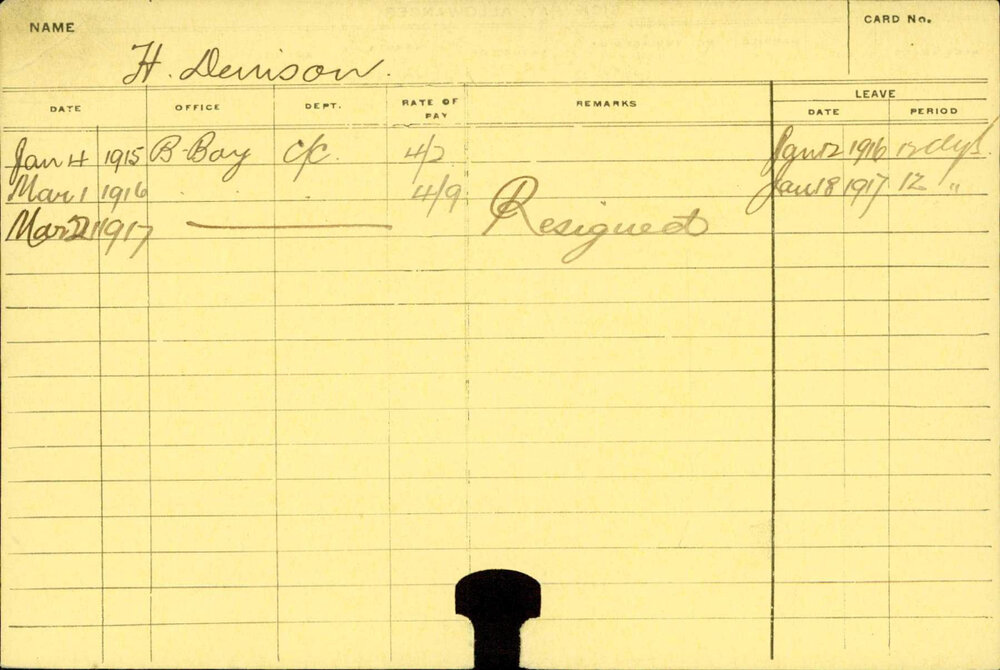 NAME
CARD No.
H. Denison.
DATE OFFICE DEPT. RATE OF PAY REMARKS LEAVE
DATE PERIOD
Jan 4 1915 B-Bay C/C. 4/2 Jan 12 1916 12 dys
Mar 1 1916 4/9 Jan 18 1917 12 "
Mar 1917 Resigned